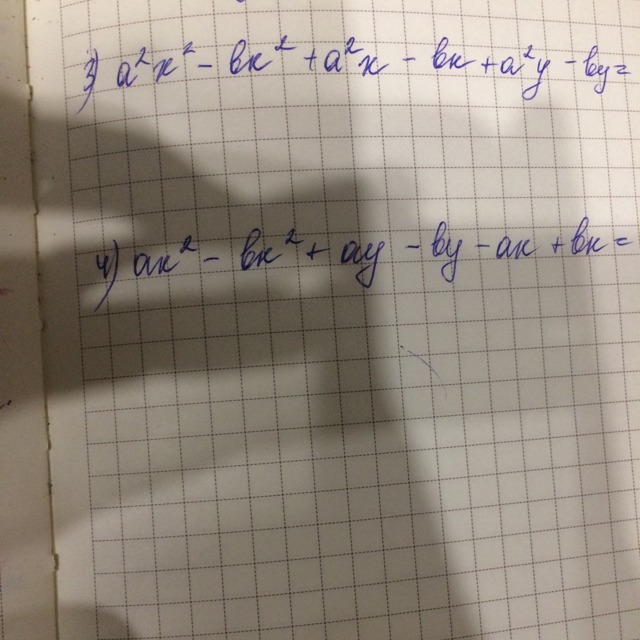 3) a²x² - bx² + a²x - bx + a²y - by =
4) ax² - bx² + ay - by - ax + bx =